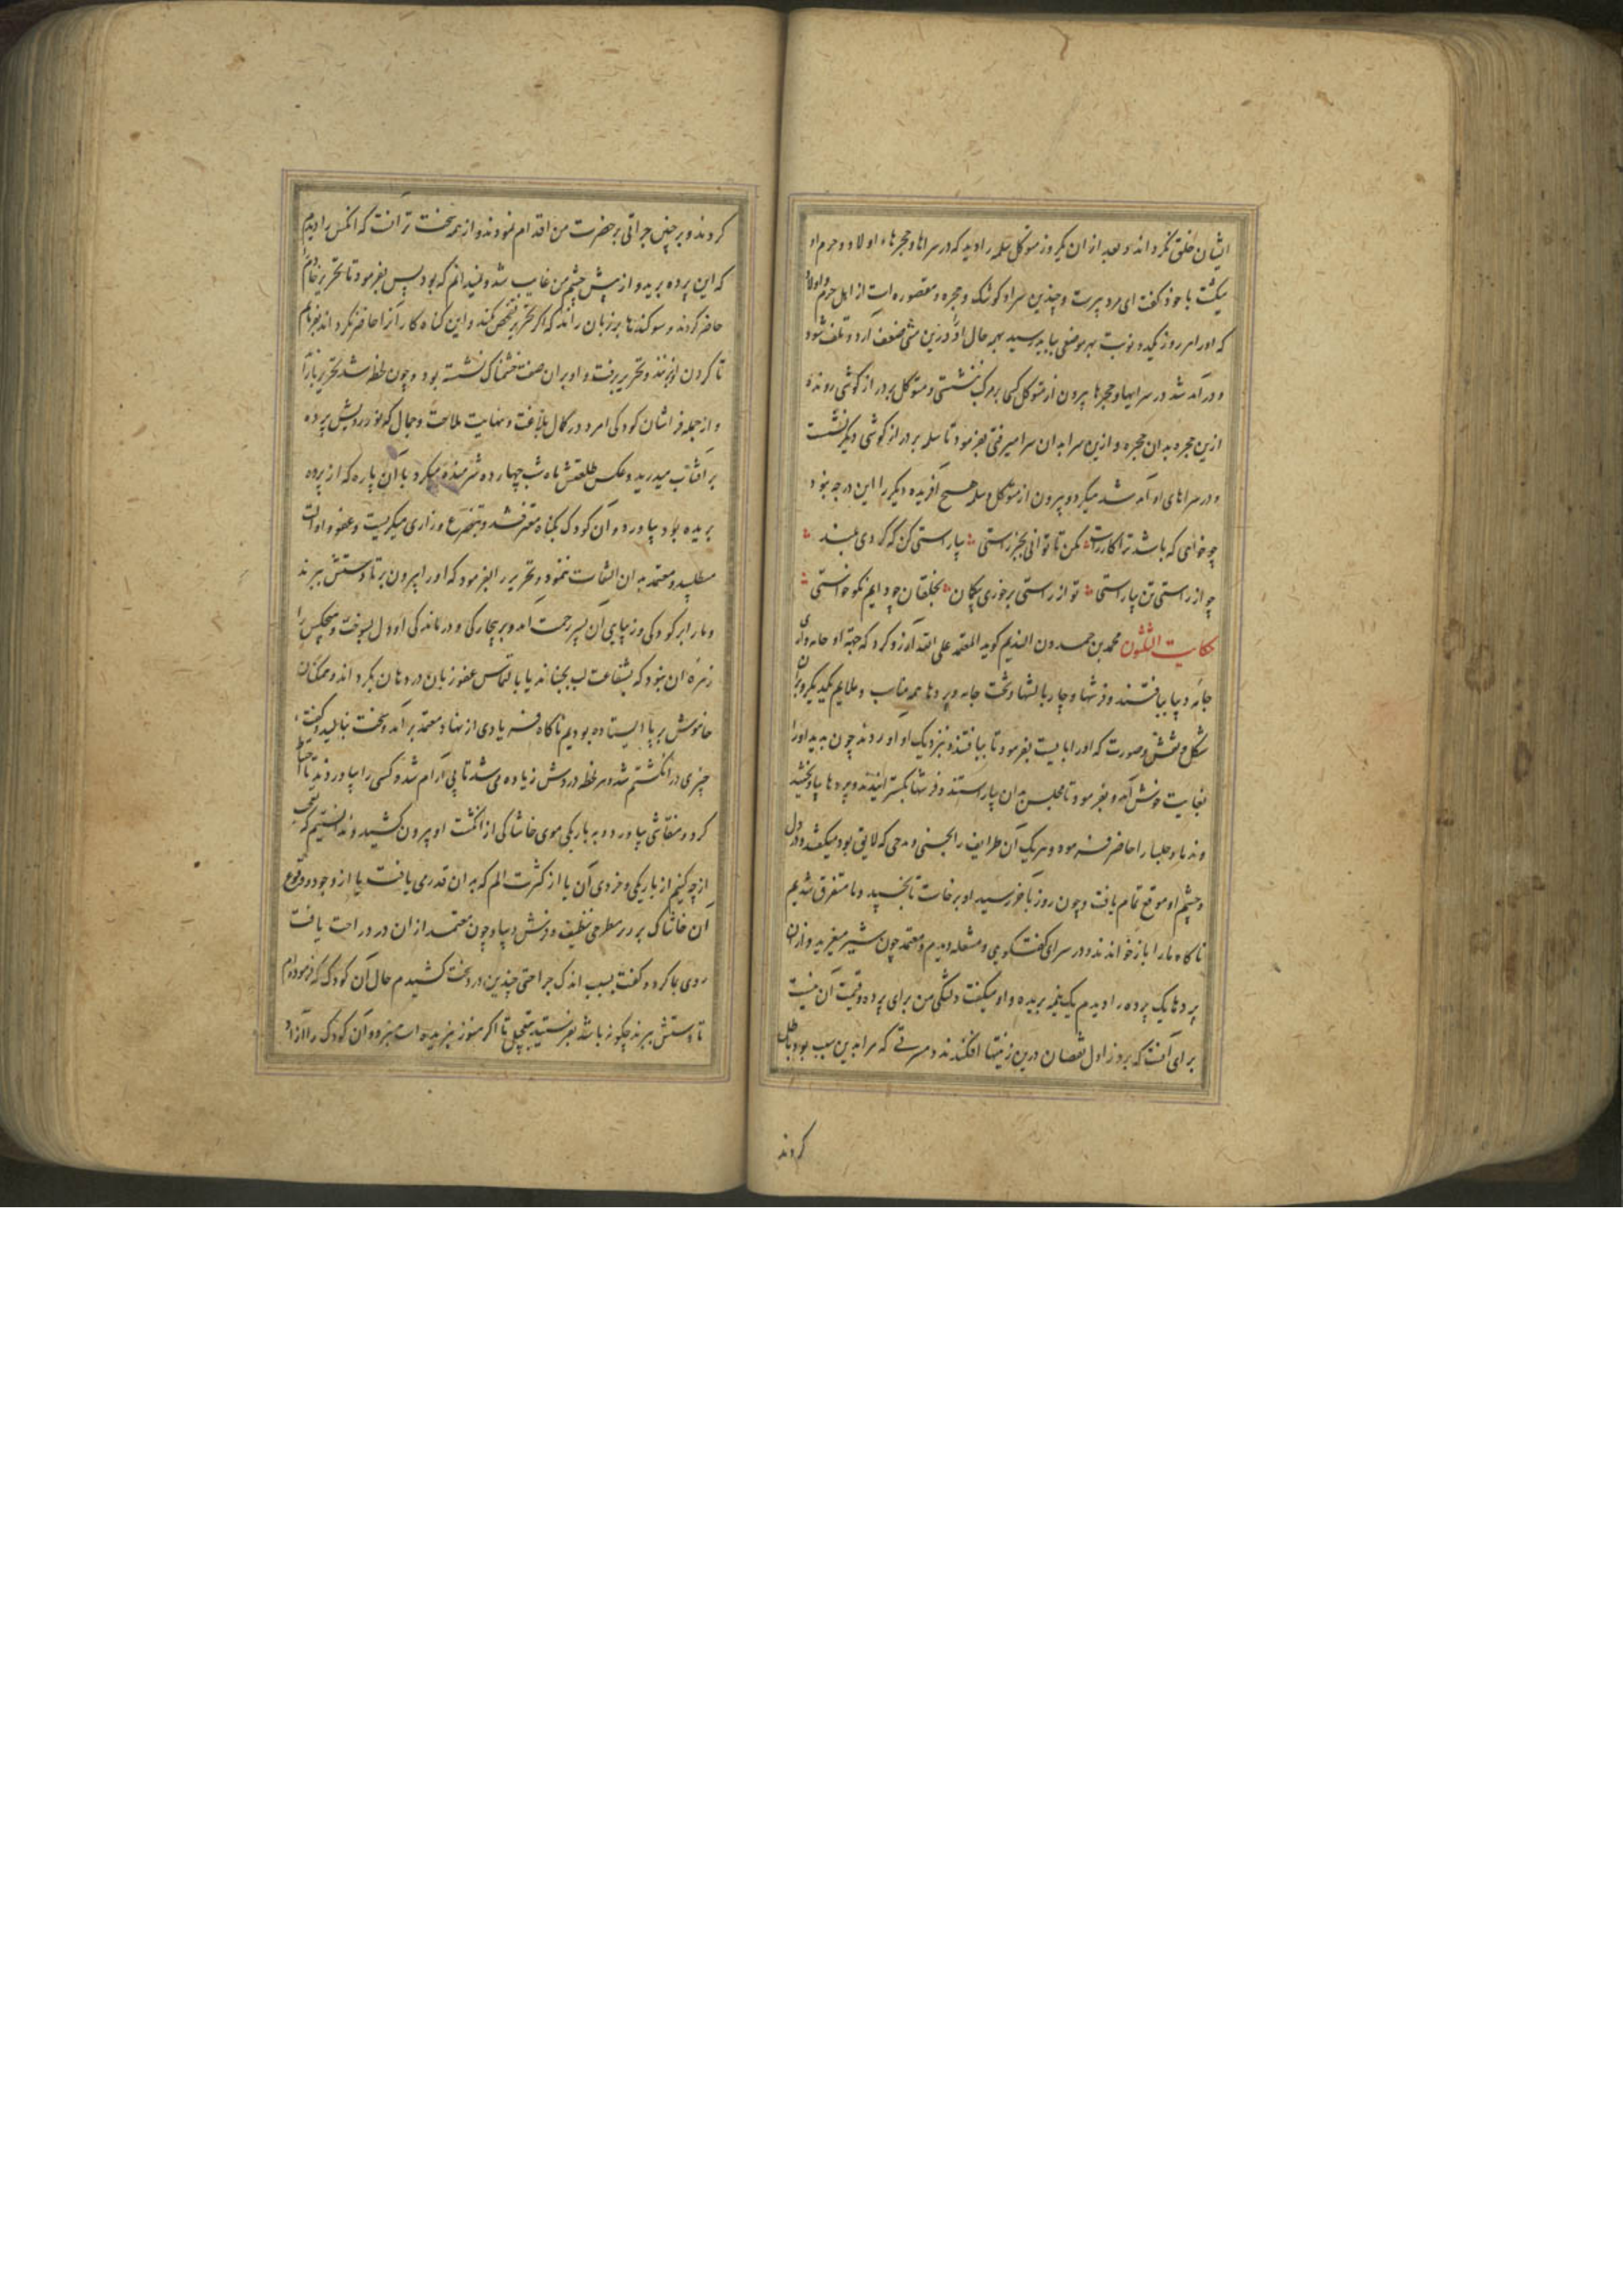 ایشان خللی نکرداند و بعد از ان یکروز متوکل سلمه را دید که در سراها و حجرهاء اولاد و حرم او
میکشت با خود کفت ای مرد پیرست و چندین سرا و کوشک و حجره و مقصوره است از اهل حرم و اولاد
که او را هر روز یکدو نوبت بهر موضعی بباید رسید بهمه حال او را درین مشی ضعف آرد و تلف شود
و در آمد شد در سرایها و حجرها بیرون از متوکل کسی بر مرکب ننشستی و متوکل بر دراز کوشی رونده
ازین حجره بدان حجره و ازین سرا بدان سرا میرفتی بفرمود تا سلمه بر دراز کوشی دیکر نشست
و در سراهای او آمد شد میکرد و بیرون از متوکل و سلمه هیچ آفریده دیکر را این درجه نبود
چو خواهی که باشد ترا کار راست مکن تا توانی بجز راستی بیا راستی کن که کردی بلند
چو از راستی تن بیاراستی تو از راستی برخوری بیکان بخلقان چو دایم نکو خواستی
حکایت الثلثون محمد بن حمدون الندیم کوید المعتمد علی الله آرزو کرد که جهة او جامه وار
جامه دیبا ببافتند و فرشها و چاربالشها و تخت جامه و پردها همه مناسب و ملایم یکدیکر و بران
شکل و نقش و صورت که او را بایست بفرمود تا ببافتند و بنزدیک او اوردند چون بدید او را
بغایت خوش آمد و بفرمود تا مجلس بدان بیاراستند و فرشها بکسترانیدند و پردها بیاویختند
و ندما و جلسا را حاضر فرموده و هر یک آن طرایف را تحسینی و مدحی که لایق بود میکفتند و در دل
و چشم او موقع تمام یافت و چون روز بآخر رسید او برخاست تا بخسپد و ما متفرق شدیم
ناکاه ما را باز خواندند و در سرای کفت و کویی و مشغله دیدم و معتمد چون شیر میغرید و ازان
پردها یک پرده را دیدم یک نیمه بریده و او میکفت دلتنکی من برای پرده و قیمت آن نیست
برای آنست که بروز اول نقصان درین زینتها افکندند و مسرتی که مرا بدین سبب بود باطل
کردند
کردند و بر چنین جراتی بر حضرت من اقدام نمودند و از همه سخت تر آنست که انکس را دیدم
که این پرده برید و از پیش چشم من غایب شد و نمیدانم که بود پس بفرمود تا تحریر خادم
حاضر کردند و سوکندها بر زبان راند که اکر تحریر تفحص نکند و این کناه کار را حاضر نکرداند بفرمایم
تا کردن او بزنند و تحریر برفت و او بران صفت خشمناک نشسته بود و چون لحظه شد تحریر باز آمد
و از جمله فراشان کودکی امرد در کمال بلاغت و نهایت ملاحت و جمال که نور رویش پرده
بر آفتاب میدرید و عکس طلعتش ماه شب چهارده شرمنده میکرد با آن پاره که از پرده
بریده بود بیاورد و آن کودک بکناه معترف شد و بتضرع و زاری میکریست و عفو و امان
میطلبید و معتمد بدان التفات ننمود و تحریر را بفرمود که او را بیرون بر تا دستش ببرند
و ما را بر کودکی و زیبایی آن پسر رحمت آمد و بر بیچارکی و درماندکی او دل بسوخت و هیچکس را
زهره ان نبود که بشفاعت لب بجنباند یا بالتماس عفو زبان در دهان بکرداند و همکنان
خاموش بر پا ایستاده بودیم ناکاه فریادی از نهاد معتمد بر آمد و سخت بنالید و کفت
چیزی در انکشتم شد و هر لحظه دردش زیاده می شد تا بی آرام شد و کسی را بیاوردند تا احتیاط
کرد و منقاشی بیاورد و به باریکی موی خاشاکی از انکشت او بیرون کشید و ندانستیم که تعجب
از چه کنیم از باریکی و خردی آن یا از کثرت الم که بدان قدر می یافت یا از وجود و وقوع
آن خاشاک بر سر مطرحی نظیف و فرش دیبا و چون معتمد از ان درد راحت یافت
روی بما کرد و کفت بسبب اندک جراحتی چندین درد سخت کشیدم حال آن کودک که فرموده‌ام
تا دستش ببرند چکونه باشد بفرستید بتعجیل تا اکر هنوز نبریده است نبرد و آن کودک را آزاد